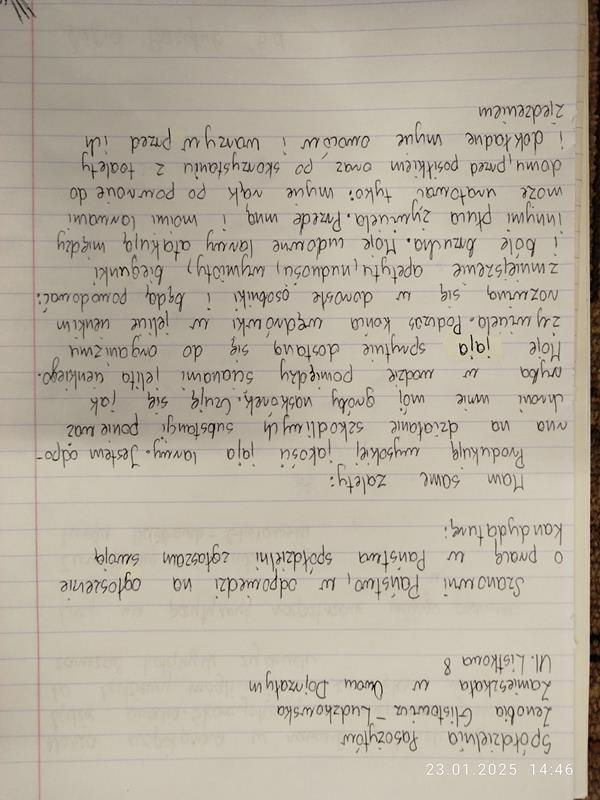 Spółdzielnia Pasożytów
Zenobia Glistowicz - Ludzkowska
Zamieszkała w Owow Dojrzatym
Ul. Listkowa 8
Szanowni Państwo, w odpowiedzi na ogłoszenie
o pracę w Państwa spółdzielni zgłaszam swoją
kandydaturę:
Mam same zalety:
Produkuję wysokiej jakości jaja larwy. Jestem odpo-
rna na działanie szkodliwych substancji ponieważ
chroni mnie mój gruby naskórek. Czuję się jak
ryba w wodzie pomiędzy ścianami jelita cienkiego.
Moje jaja sprytnie dostaną się do organizmu
żywiciela. Podczas końca wędrówki w jelicie cienkim
rozwiną się w dorosłe osobniki i będą powodować:
zmniejszenie apetytu, nudności, wymioty, biegunki
i bóle brzucha. Moje cudowne larwy atakują między
innymi płuca żywiciela. Przede mną i moimi larwami
może uratować tylko: mycie rąk po powrocie do
domu, przed posiłkiem oraz po skorzystaniu z toalety
i dokładne mycie owoców i warzyw przed ich
zjedzeniem
23.01.2025 14:46